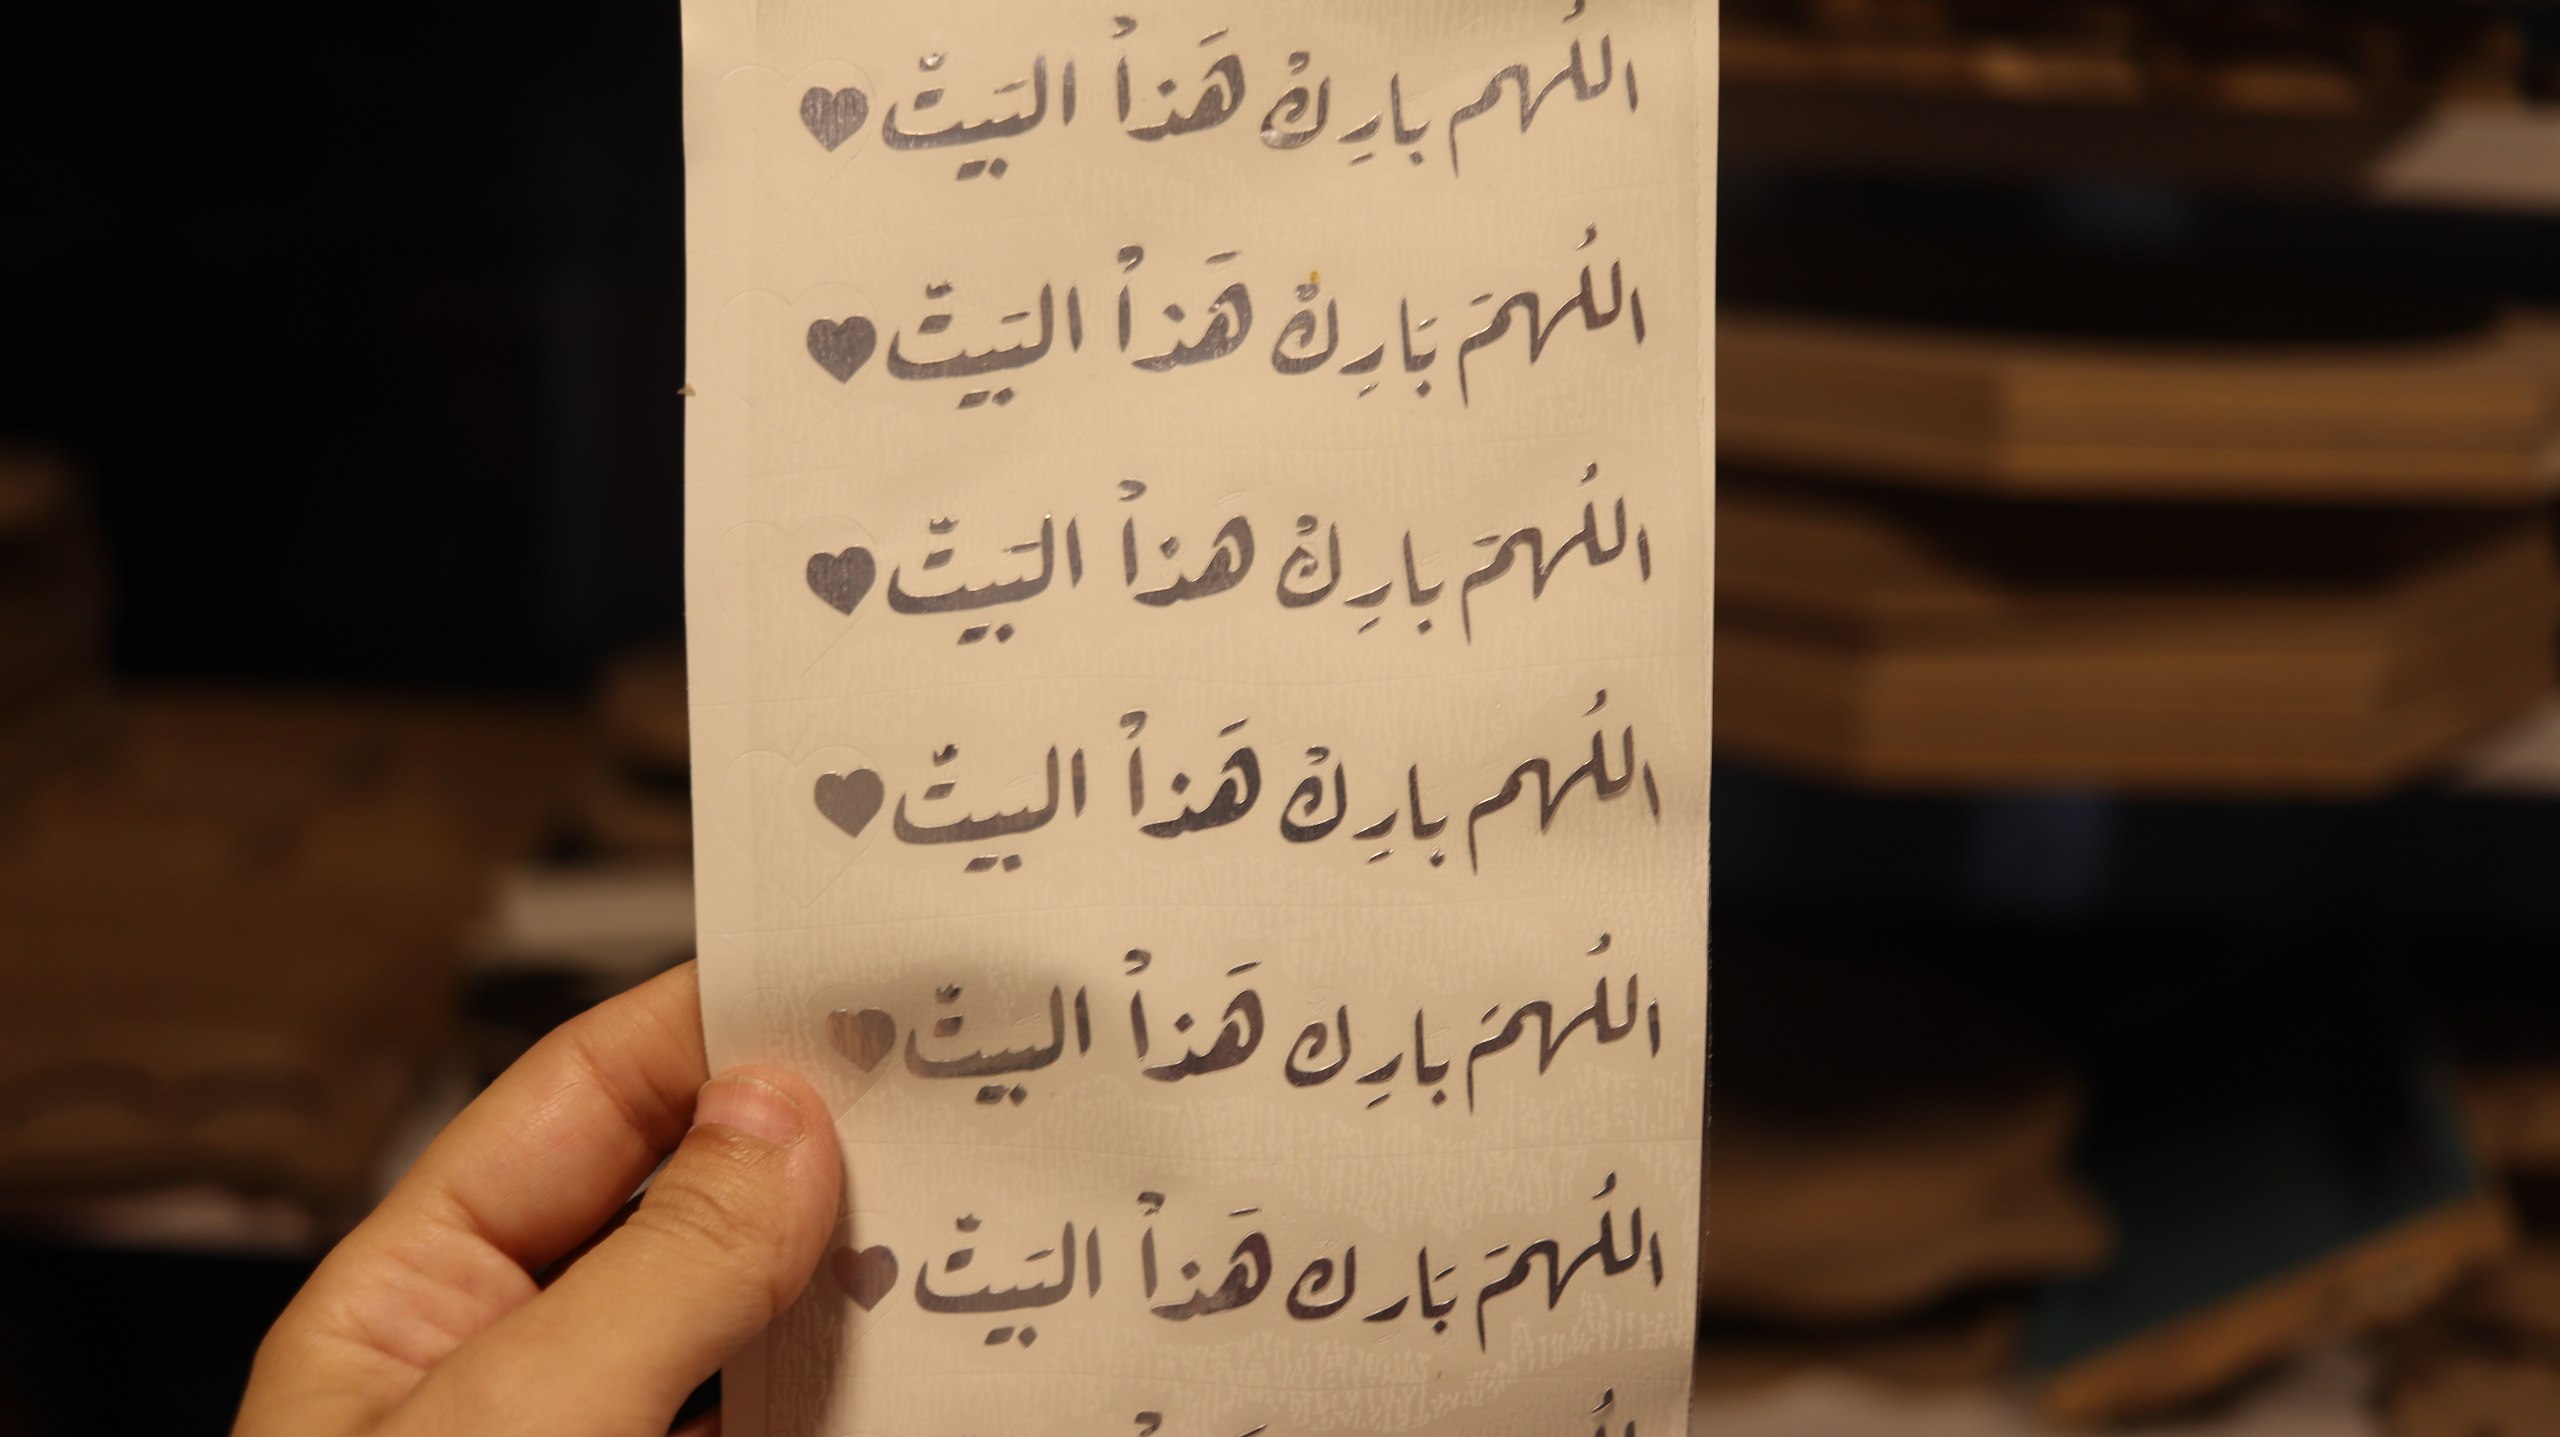 اللهم بارِكْ هَذاْ البَيتّ♥
اللهمَ بَارِكْ هَذاْ البَيتّ♥
اللهمَ بارِكْ هَذاْ البَيتّ♥
اللهم بارِكْ هَذاْ البَيتّ♥
اللهمَ بارِك هَذاْ البَيتّ♥
اللهمَ بَارِك هَذاْ البَيتّ♥